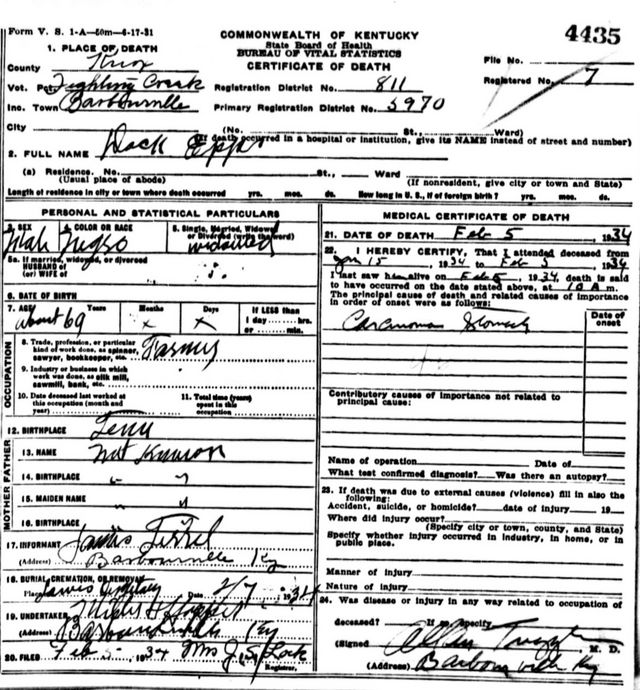 Form V. S. 1-A-50m-6-17-31
COMMONWEALTH OF KENTUCKY
State Board of Health
BUREAU OF VITAL STATISTICS
CERTIFICATE OF DEATH
4435
1. PLACE OF DEATH
County Knox
Vot. Pct. Fighting Creek
Inc. Town Barbourville
City
Registration District No. 811
Primary Registration District No. 5970
File No.
Registered No. 7
(No. St., Ward)
(If death occurred in a hospital or institution, give its NAME instead of street and number)
2. FULL NAME Dock Epps
(a) Residence. No. St., Ward
(Usual place of abode) (If nonresident, give city or town and State)
Length of residence in city or town where death occurred yrs. mos. ds. How long in U. S., if of foreign birth? yrs. mos. ds.
PERSONAL AND STATISTICAL PARTICULARS
3. SEX Male
4. COLOR OR RACE Negro
5. Single, Married, Widowed or Divorced (write the word) widowed
5a. If married, widowed, or divorced
HUSBAND of
(or) WIFE of
6. DATE OF BIRTH
7. AGE Years Months Days If LESS than
about 69 x x 1 day hrs.
or min.
OCCUPATION
8. Trade, profession, or particular
kind of work done, as spinner,
sawyer, bookkeeper, etc.
9. Industry or business in which
work was done, as silk mill,
sawmill, bank, etc.
10. Date deceased last worked at
this occupation (month and
year)
11. Total time (years)
spent in this
occupation
12. BIRTHPLACE Tenn
FATHER
13. NAME not known
14. BIRTHPLACE " "
MOTHER
15. MAIDEN NAME " "
16. BIRTHPLACE
17. INFORMANT
(Address) Barbourville Ky
18. BURIAL, CREMATION, OR REMOVAL
Place Date 2/7, 1934
19. UNDERTAKER
(Address) Barbourville Ky
20. FILED Feb 5, 1934 Mrs J. S. Lock
Registrar.
MEDICAL CERTIFICATE OF DEATH
21. DATE OF DEATH Feb 5, 1934
22. I HEREBY CERTIFY, That I attended deceased from
Jan 15, 1934 to Feb 5, 1934
I last saw him alive on Feb 5, 1934, death is said
to have occurred on the date stated above, at 10 A m.
The principal cause of death and related causes of importance
in order of onset were as follows:
Date of onset
Carcinoma Stomach
Contributory causes of importance not related to
principal cause:
Name of operation Date of
What test confirmed diagnosis? Was there an autopsy?
23. If death was due to external causes (violence) fill in also the
following:
Accident, suicide, or homicide? date of injury 19
Where did injury occur?
(Specify city or town, county, and State)
Specify whether injury occurred in industry, in home, or in
public place.
Manner of injury
Nature of injury
24. Was disease or injury in any way related to occupation of
deceased? If so, specify
(Signed) M. D.
(Address) Barbourville Ky